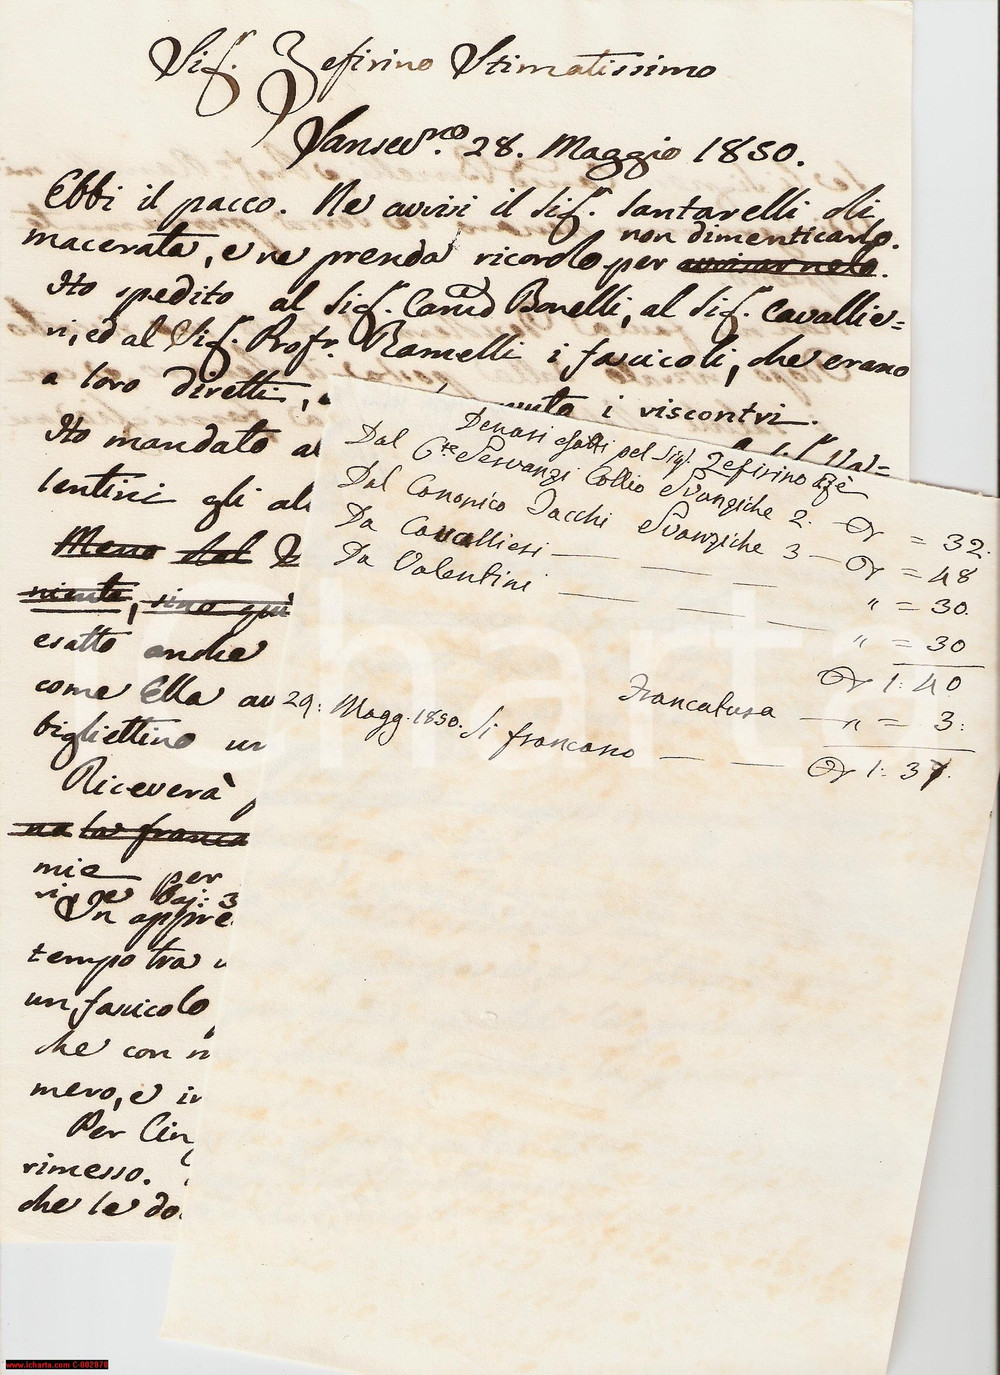 Sig. Zefirino Stimatissimo
Sansev.no 28. Maggio 1850.
Ebbi il pacco. Ne avvisi il Sig. Santarelli di
non dimenticarlo.
macerata, e ne prenda ricordo per avvisarnelo.
Ho spedito al Sig. Cand Bonelli, al Sig. Cavallie=
ri, ed al Sig. Profr. Ramelli i fascicoli, che erano
a loro diretti, i riscontri.
Ho mandato al Sig. Va=
lentini gli
Meno dal
niente, sino qui
esatto anche
come Ella av
bigliettino un
Riceverà
na la franca
mie per
ri, e Baj: 3
In appre
tempo tra
un fascicolo
che con n
mero, e in
Per Cin
rimesso.
che le do
Denari esatti pel Sig. Zefirino Rè
Dal Cte Servanzi Collio Svanziche 2. = 32.
Dal Canonico Tacchi Svanziche 3 = 48
Da Cavallieri " = 30.
Da Valentini " = 30
1:40
Francatura " = 3:
29: Magg. 1850. Si francano 1:37.
charta
www.icharta.com C-002870